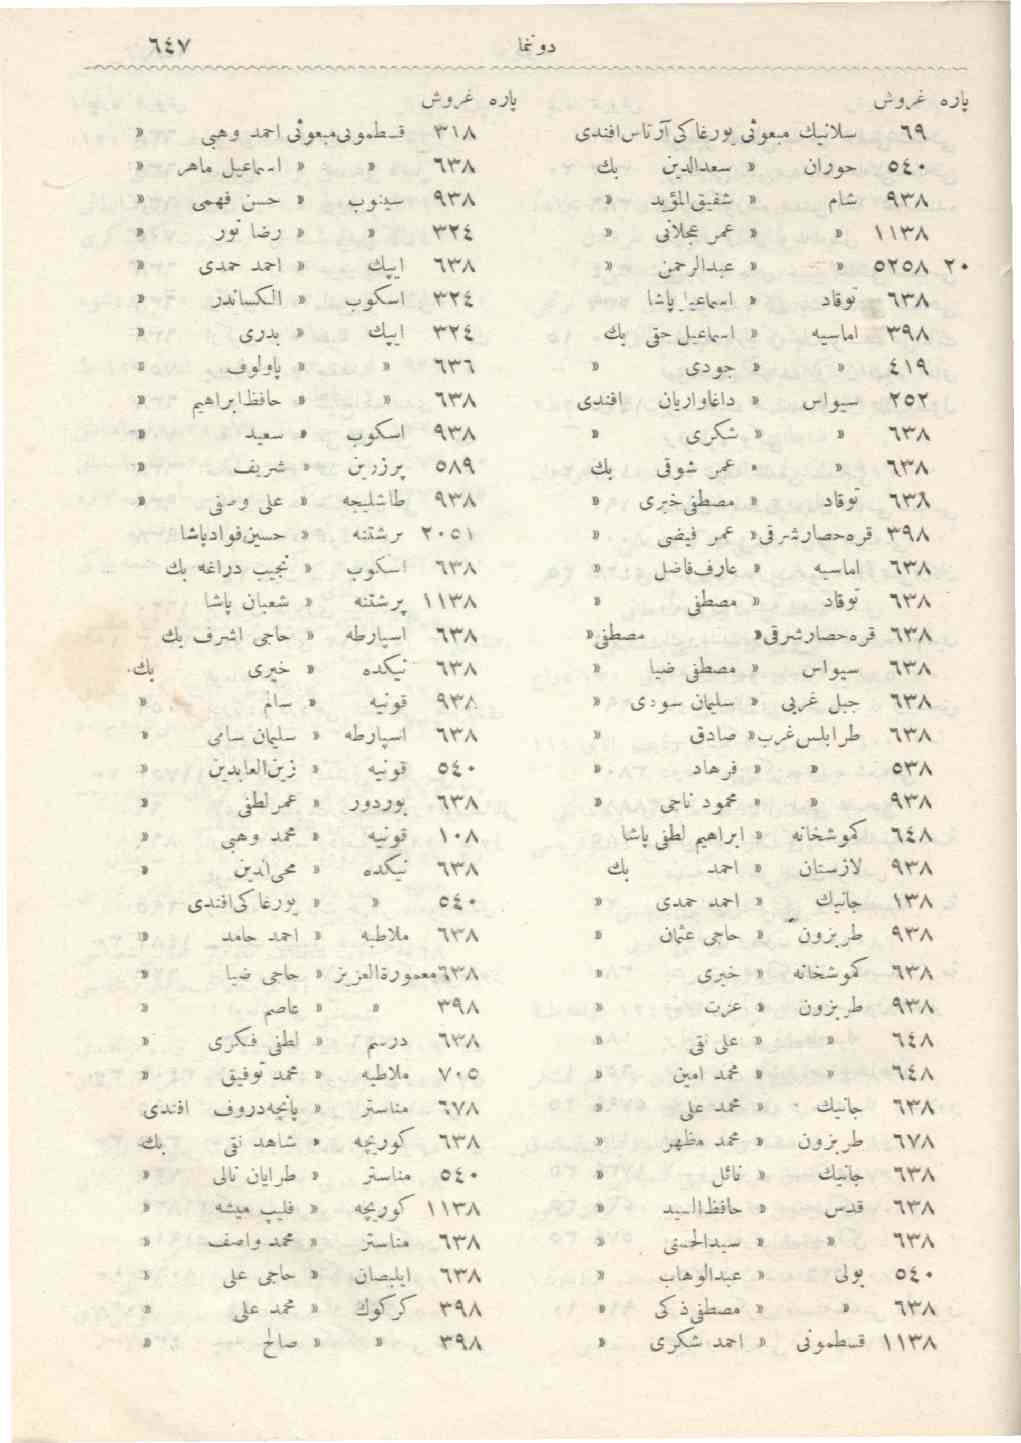 دونما ٦٤٧
پاره غروش
٦٩ سلانيك مبعوثی يورغاکی آرتاس افندی
٥٤٠ حوران » سعدالدين بك
٩٣٨ شام » شفيق المؤيد »
١١٣٨ » » عمر عجلانی »
٢٠ ٥٢٥٨ » » عبدالرحمن »
٦٣٨ توقاد » اسماعيل پاشا
٣٩٨ اماسيه » اسماعيل حقی بك
٤١٩ » » جودی »
٢٥٢ سيواس » داغاواريان افندی
٦٣٨ » » شكری »
٦٣٨ » » عمر شوقی بك
٦٣٨ توقاد » مصطفی خبری »
٣٩٨ قره‌حصار شرقی » عمر فيضی »
٦٣٨ اماسيه » عارف فاضل »
٦٣٨ توقاد » مصطفی »
٦٣٨ قره‌حصار شرقی » مصطفی »
٦٣٨ سيواس » مصطفی ضيا »
٦٣٨ جبل غربی » سليمان سودی »
٦٣٨ طرابلس غرب » صادق »
٥٣٨ » » فرهاد »
٩٣٨ » » محمود ناجی »
٦٤٨ كموشخانه » ابراهيم لطفی پاشا
٩٣٨ لازستان » احمد بك
١٣٨ جانيك » احمد حمدی »
٩٣٨ طربزون » حاجی عثمان »
٦٣٨ كموشخانه » خبری »
٩٣٨ طربزون » عزت »
٦٤٨ » » علی نقی »
٦٤٨ » » محمد امين »
٦٣٨ جانيك » محمد علی »
٦٧٨ طربزون » محمد مظهر »
٦٣٨ جانيك » نائل »
٦٣٨ قدس » حافظ السيد »
٦٣٨ » » سيدالحسنی »
٥٤٠ بولی » عبدالوهاب »
٦٣٨ » » مصطفی ذكی »
١١٣٨ قسطمونی » احمد شكری »
پاره غروش
٣١٨ قسطمونی مبعوثی احمد وهبی »
٦٣٨ » » اسماعيل ماهر »
٩٣٨ سينوب » حسن فهمی »
٣٢٤ » » رضا نور »
٦٣٨ ايپك » احمد حمدی »
٣٢٤ اسكوب » الكساندر »
٣٢٤ ايپك » بدری »
٦٣٦ » » پاولوف »
٦٣٨ » » حافظ ابراهيم »
٩٣٨ اسكوب » سعيد »
٥٨٩ پرزرين » شريف »
٩٣٨ طاشليجه » علی وصفی »
٢٠٥١ پرشتنه » حسين فواد پاشا
٦٣٨ اسكوب » نجيب دراغه بك
١١٣٨ پرشتنه » شعبان پاشا
٦٣٨ اسپارطه » حاجی اشرف بك
٦٣٨ نيكده » خيری بك
٩٣٨ قونيه » سالم »
٦٣٨ اسپارطه » سليمان سامی »
٥٤٠ قونيه » زين العابدين »
٦٣٨ بوردور » عمر لطفی »
١٠٨ قونيه » محمد وهبی »
٦٣٨ نيكده » محی الدين »
٥٤٠ » » يورغاکی افندی
٦٣٨ ملاطيه » احمد حامد »
٦٣٨ معمورة العزيز » حاجی ضيا »
٣٩٨ » » عاصم »
٦٣٨ درسم » لطفی فكری »
٧٠٥ ملاطيه » محمد توفيق »
٦٧٨ مناستر » پانچه‌دروف افندی
٦٣٨ كوريجه » شاهد نقی بك
٥٤٠ مناستر » طرايان نالی »
١١٣٨ كوريچه » فليپ ميشه »
٦٣٨ مناستر » محمد واصف »
٦٣٨ ايلبصان » حاجی علی »
٣٩٨ كركوك » محمد علی »
٣٩٨ » » صالح »